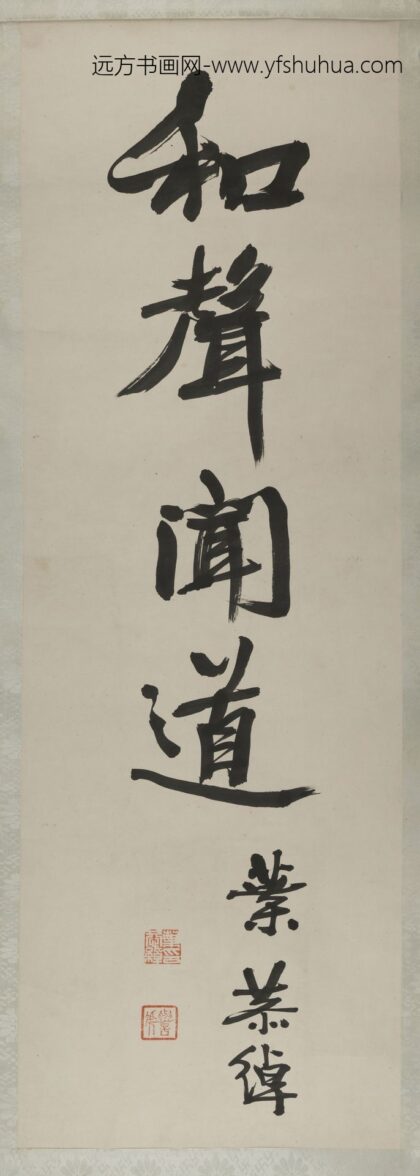 远方书画网-www.yfshuhua.com
和聲聞道
葉恭綽